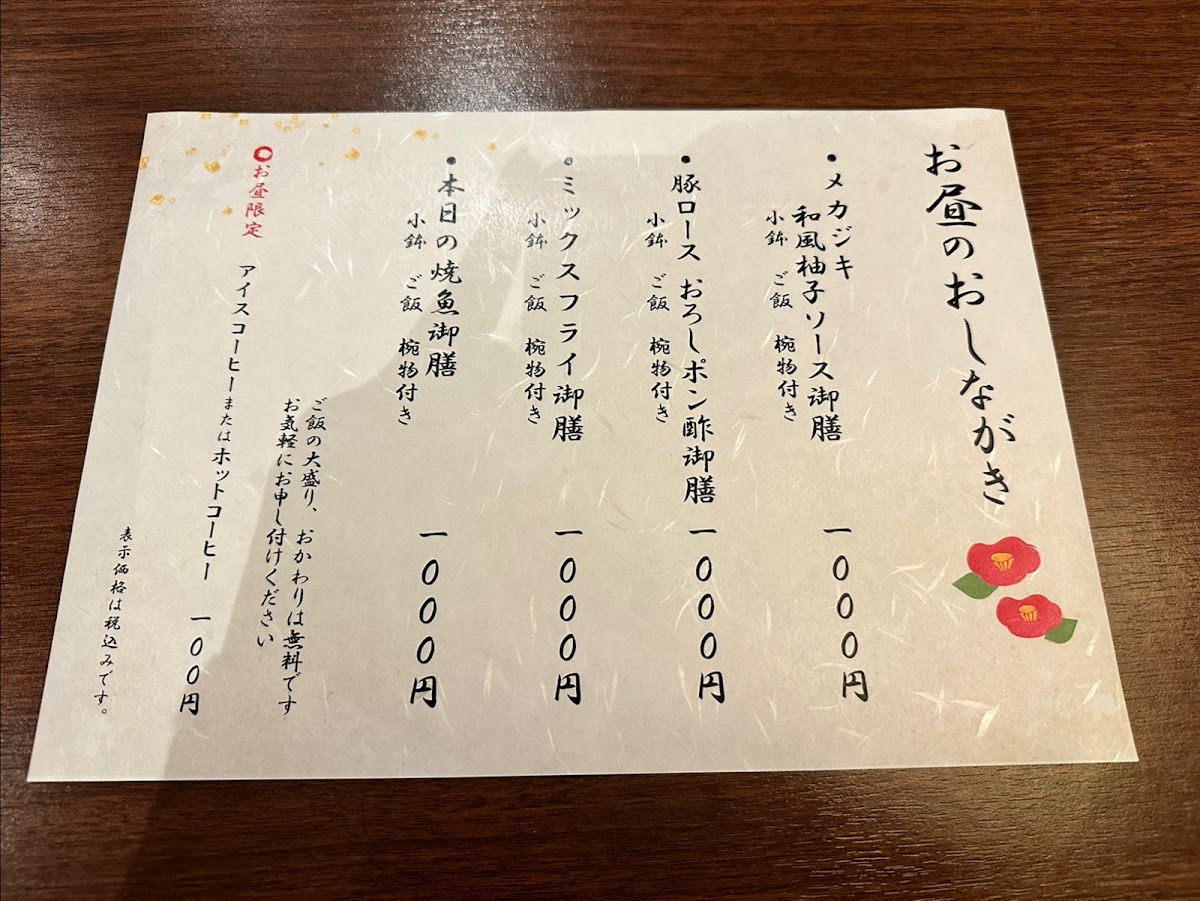 お昼のおしながき
・メカジキ
和風柚子ソース御膳 一〇〇〇円
小鉢 ご飯 椀物付き
・豚ロース おろしポン酢御膳 一〇〇〇円
小鉢 ご飯 椀物付き
・ミックスフライ御膳 一〇〇〇円
小鉢 ご飯 椀物付き
・本日の焼魚御膳 一〇〇〇円
小鉢 ご飯 椀物付き
ご飯の大盛り、おかわりは無料です
お気軽にお申し付けください
○お昼限定
アイスコーヒーまたはホットコーヒー 一〇〇円
表示価格は税込みです。